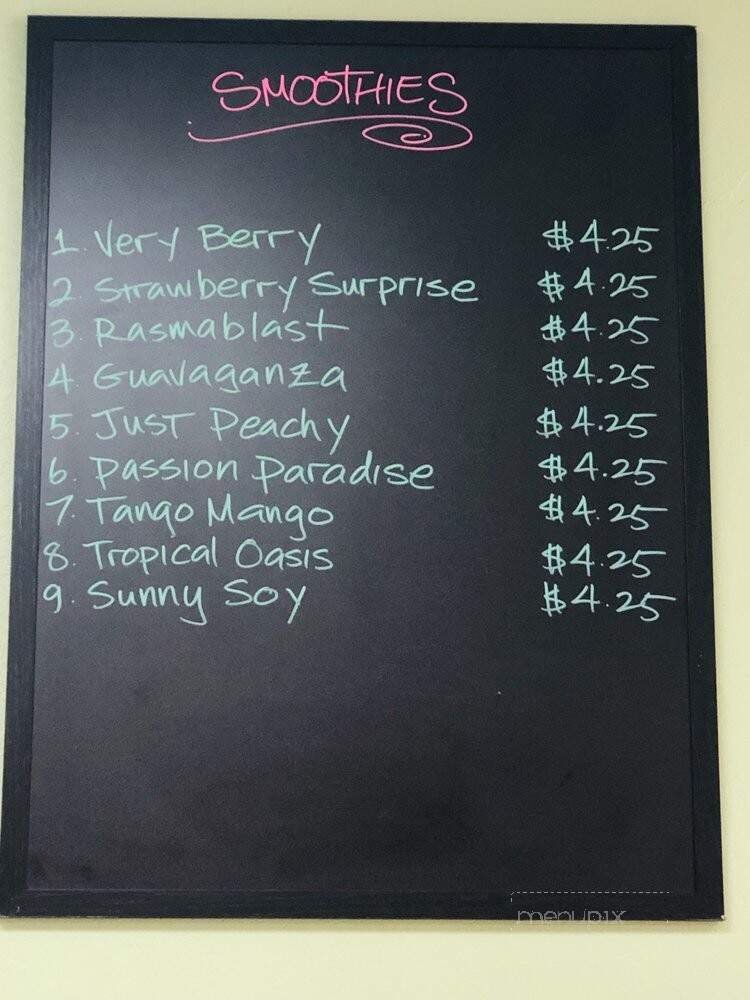 SMOOTHIES
1. Very Berry $4.25
2. Strawberry Surprise $4.25
3. Rasmablast $4.25
4. Guavaganza $4.25
5. Just Peachy $4.25
6. Passion Paradise $4.25
7. Tango Mango $4.25
8. Tropical Oasis $4.25
9. Sunny Soy $4.25
menupix